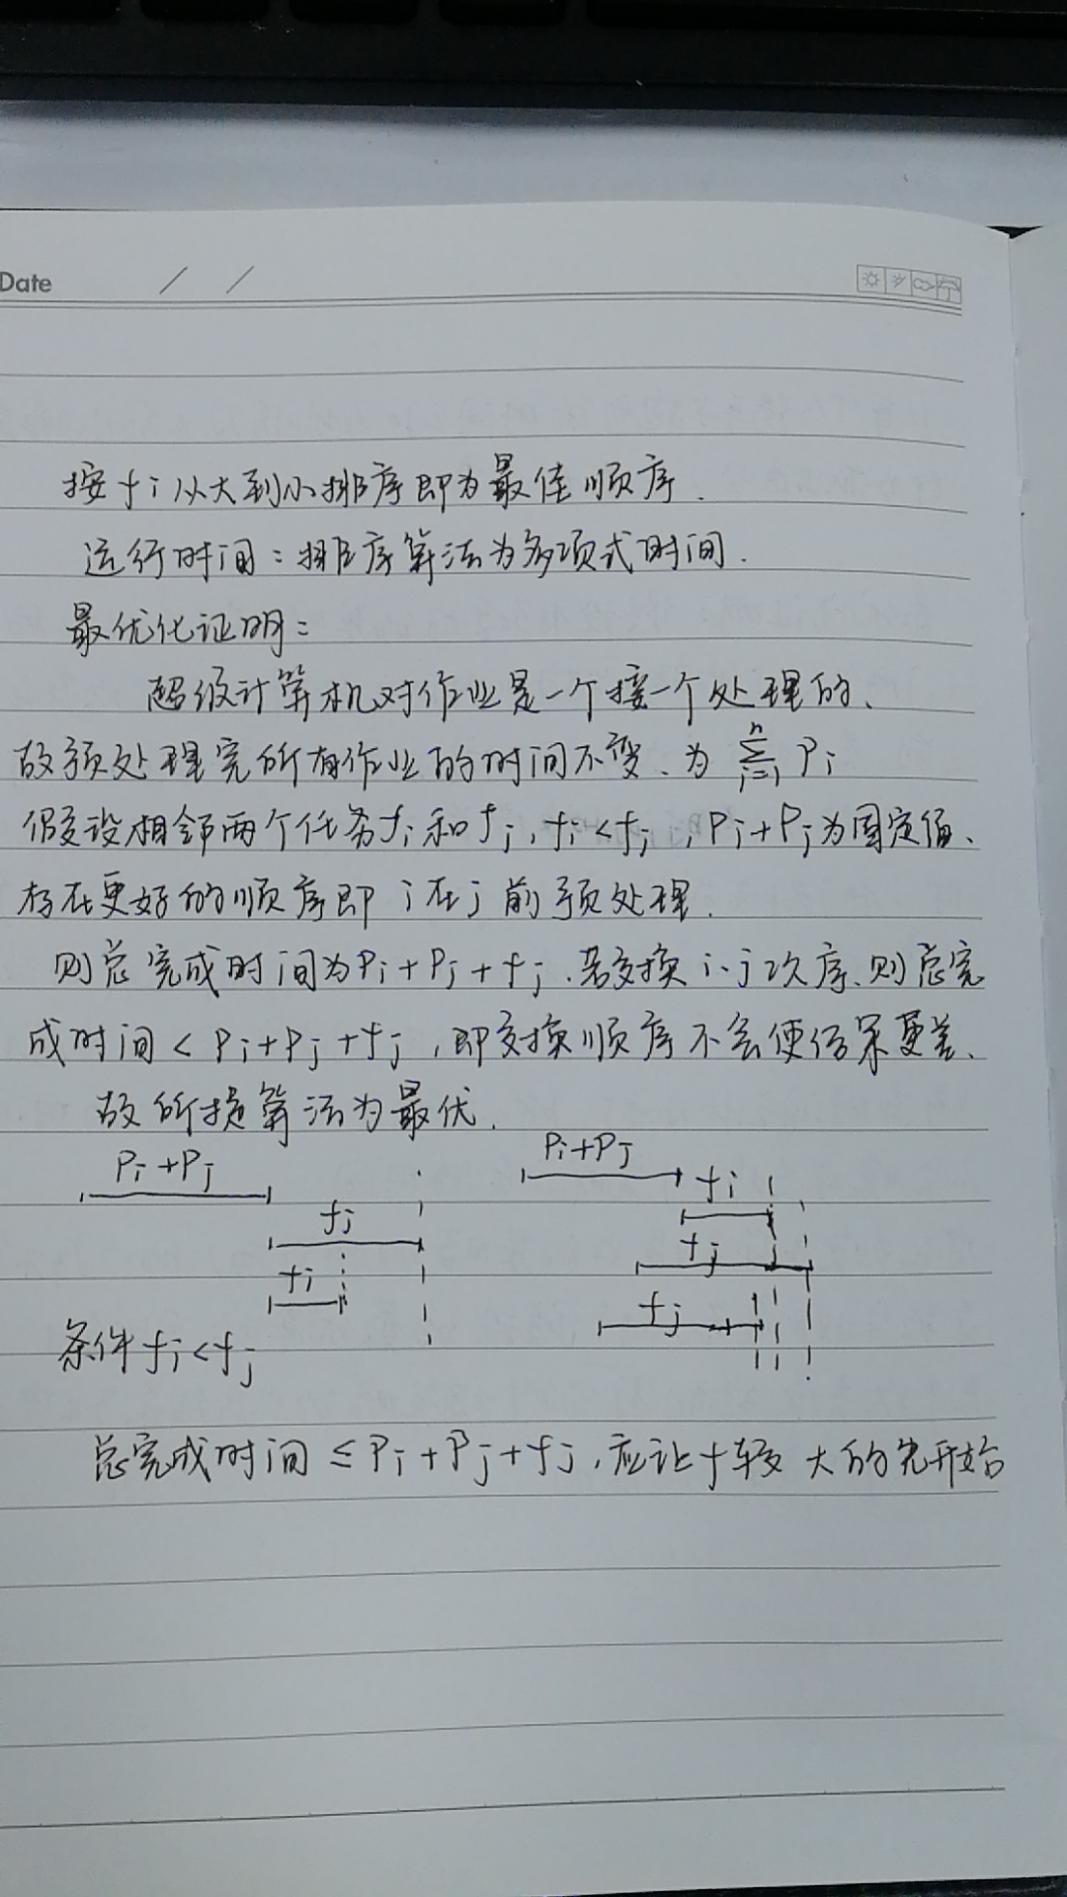 Date / /
按fi从大到小排序即为最佳顺序.
运行时间:排序算法为多项式时间.
最优化证明:
超级计算机对作业是一个接一个处理的、
故预处理完所有作业的时间不变、为 \sum_{i=1}^{n} Pi
假设相邻两个任务fi和fj,fi<fj,Pi+Pj为固定值、
存在更好的顺序即i在j前预处理.
则总完成时间为Pi+Pj+fj.若交换i、j次序、则总完
成时间<Pi+Pj+fj,即交换顺序不会使结果更差、
故所提算法为最优.
Pi+Pj Pi+Pj
fj fi
fi fj
fj
条件fi<fj
总完成时间≤Pi+Pj+fj,应让f较大的先开始